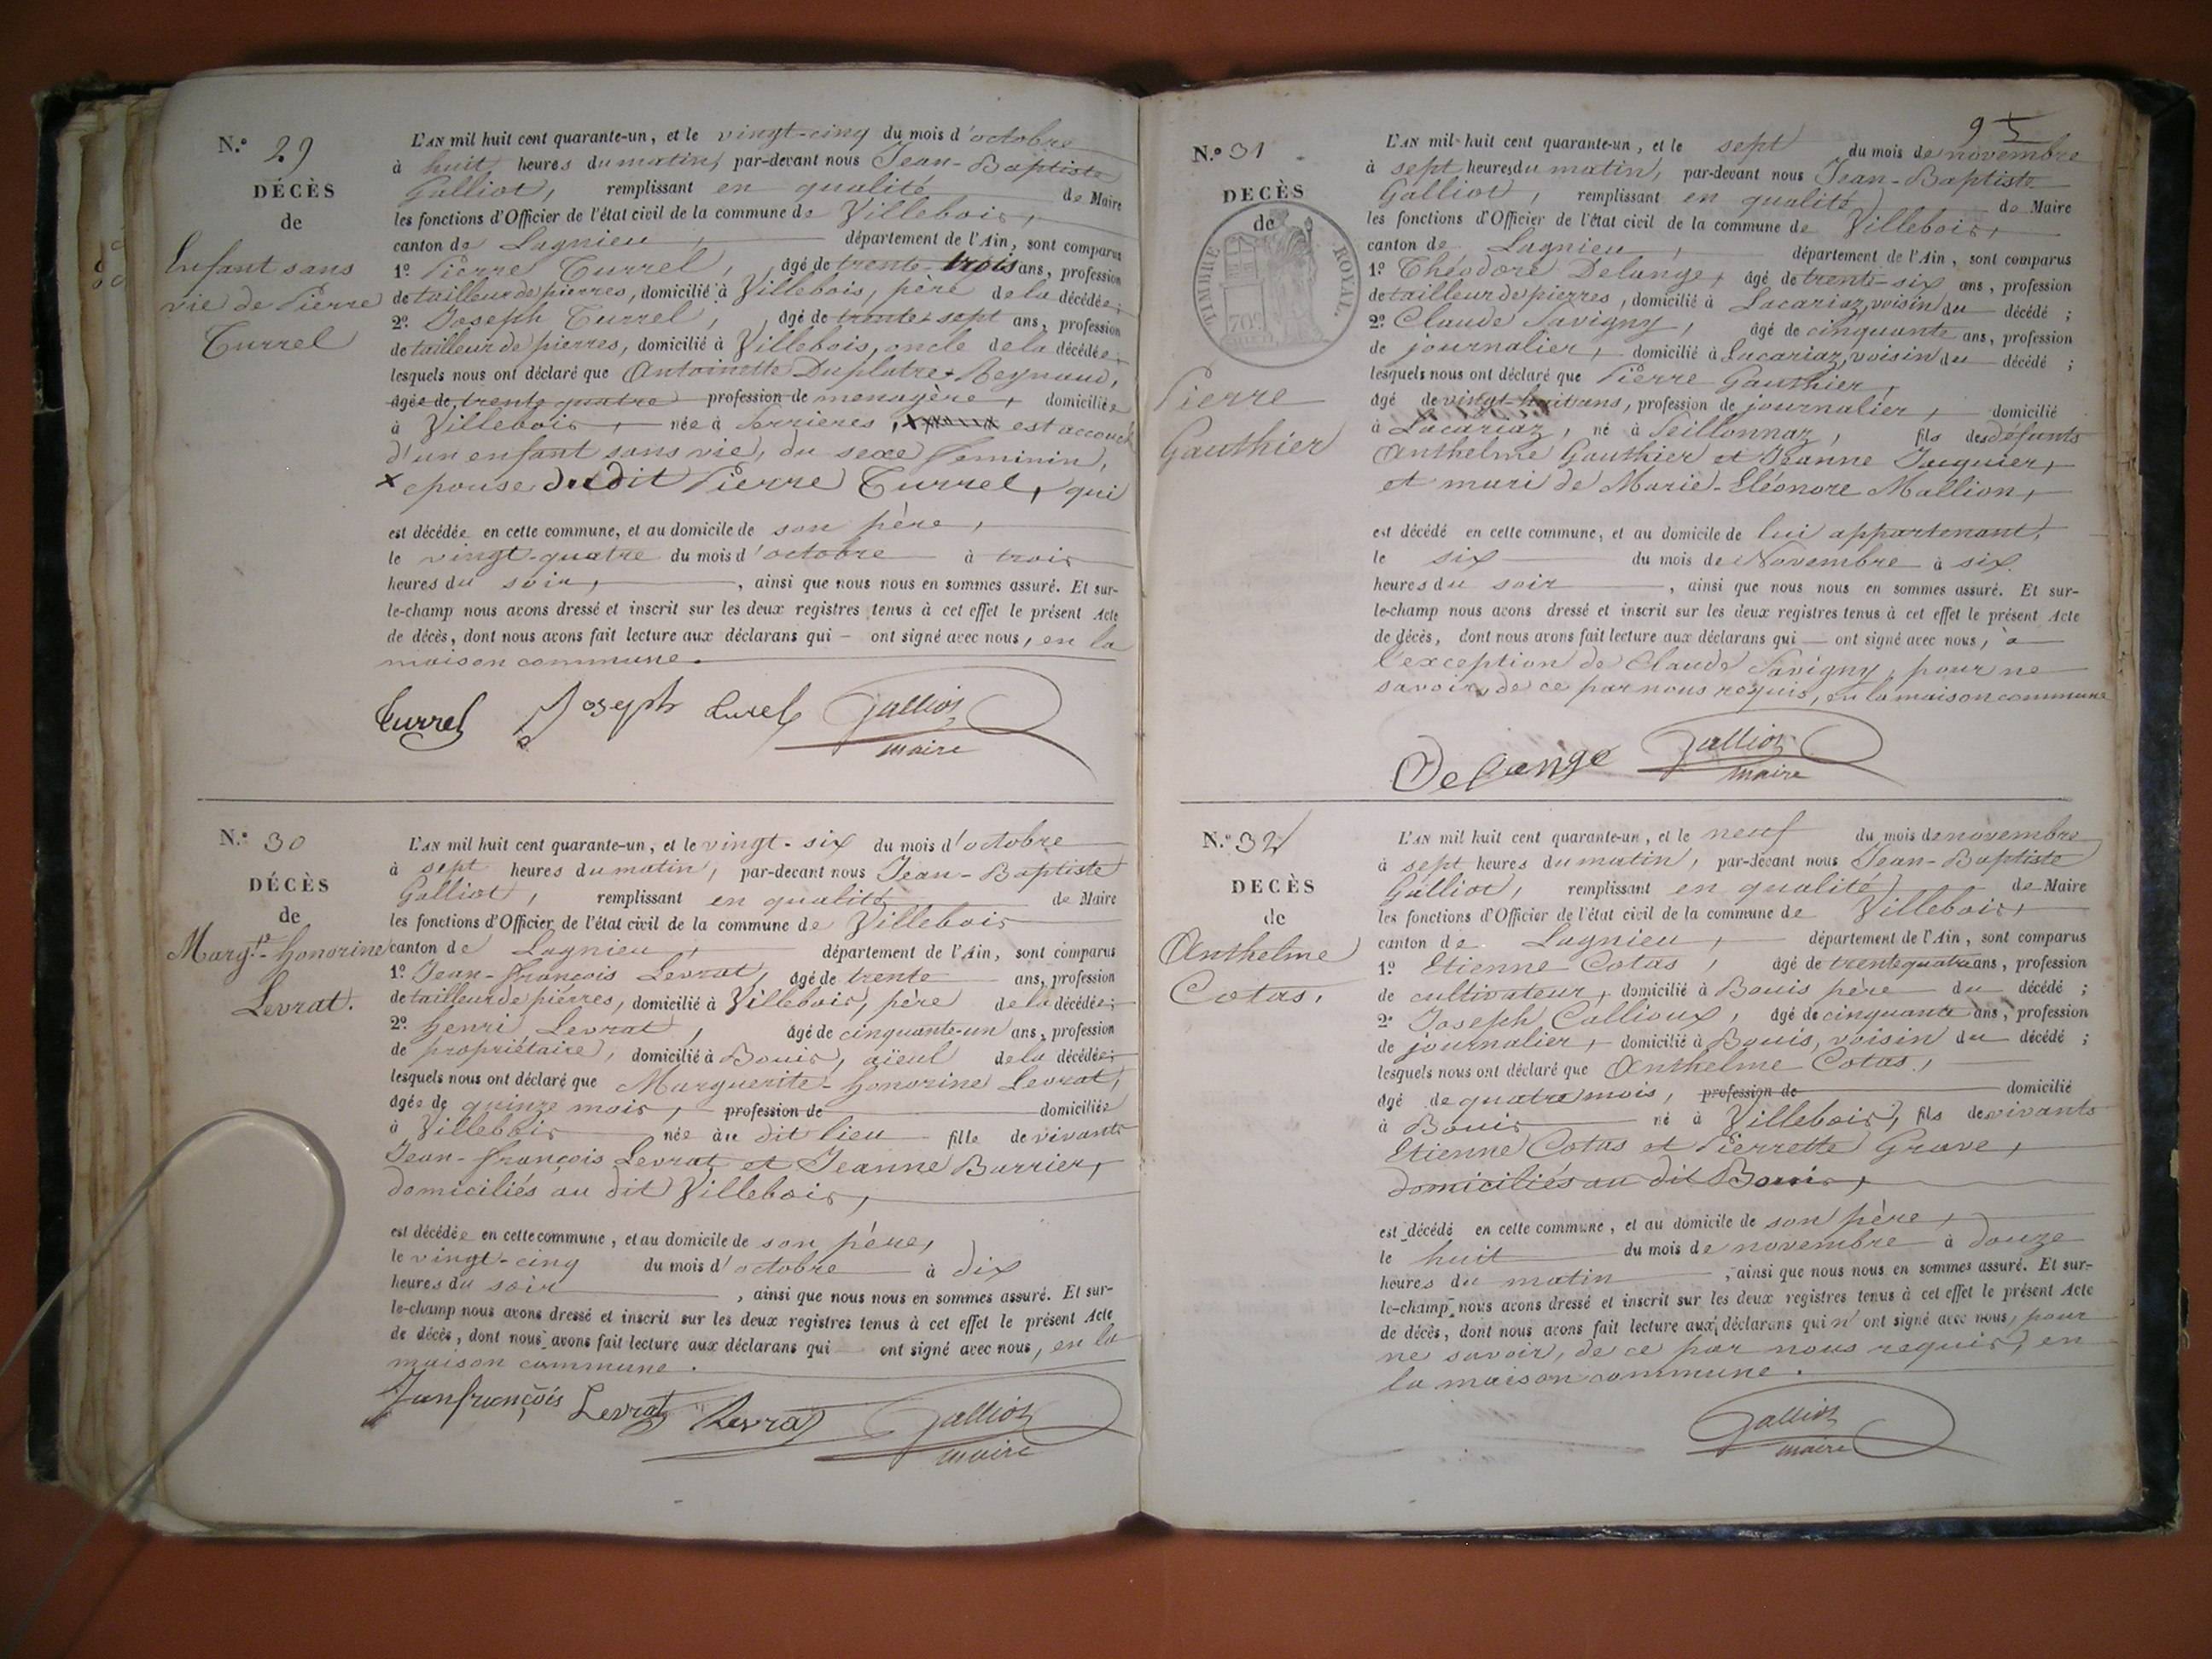 N.º 29
DÉCÈS
de
Enfant sans
vie de Pierre
Turrel
L'AN mil huit cent quarante-un, et le vingt-cinq du mois d'octobre
à huit heures du matin, par-devant nous Jean-Baptiste
Galliot, remplissant en qualité de Maire
les fonctions d'Officier de l'état civil de la commune de Villebois,
canton de Lagnieu, département de l'Ain, sont comparus
1º Pierre Turrel, âgé de trente-trois ans, profession
de tailleur de pierres, domicilié à Villebois, père de la décédée;
2º Joseph Turrel, âgé de trente-sept ans, profession
de tailleur de pierres, domicilié à Villebois, oncle de la décédée;
lesquels nous ont déclaré que Antoinette Duplatre-Reynaud,
âgée de trente quatre profession de menagère, domiciliée
à Villebois, née à Serrieres, est accouch
d'un enfant sans vie, du sexe feminin,
x epouse du dit Pierre Turrel, qui
est décédée en cette commune, et au domicile de son père,
le vingt-quatre du mois d'octobre à trois
heures du soir, ainsi que nous nous en sommes assuré. Et sur-
le-champ nous avons dressé et inscrit sur les deux registres tenus à cet effet le présent Acte
de décès, dont nous avons fait lecture aux déclarans qui – ont signé avec nous, en la
maison commune.
Turrel Joseph turel Galliot
maire
N.º 30
DÉCÈS
de
Margte-honorine
Levrat.
L'AN mil huit cent quarante-un, et le vingt-six du mois d'octobre
à sept heures du matin, par-devant nous Jean-Baptiste
Galliot, remplissant en qualité de Maire
les fonctions d'Officier de l'état civil de la commune de Villebois
canton de Lagnieu, département de l'Ain, sont comparus
1º Jean-françois Levrat, âgé de trente ans, profession
de tailleur de pierres, domicilié à Villebois, père de la décédée;
2º henri Levrat, âgé de cinquante-un ans, profession
de propriétaire, domicilié à Bouis, aïeul de la décédée;
lesquels nous ont déclaré que Marguerite-honorine Levrat,
âgée de quinze mois, profession de domiciliée
à Villebois née au dit lieu fille de vivants
Jean-françois Levrat et Jeanne Barrier,
domiciliés au dit Villebois,
est décédée en cette commune, et au domicile de son père,
le vingt-cinq du mois d'octobre à dix
heures du soir, ainsi que nous nous en sommes assuré. Et sur-
le-champ nous avons dressé et inscrit sur les deux registres tenus à cet effet le présent Acte
de décès, dont nous avons fait lecture aux déclarans qui ont signé avec nous, en la
maison commune.
Janfrançois Levrat Levrat Galliot
maire
95
N.º 31
DECÈS
de
TIMBRE ROYAL
70c
Pierre
Gauthier
L'AN mil-huit cent quarante-un, et le sept du mois de novembre
à sept heures du matin, par-devant nous Jean-Baptiste
Galliot, remplissant en qualité de Maire
les fonctions d'Officier de l'état civil de la commune de Villebois,
canton de Lagnieu, département de l'Ain, sont comparus
1º Théodore Delange, âgé de trente-six ans, profession
de tailleur de pierres, domicilié à Lacariaz, voisin du décédé;
2º Claude Savigny, âgé de cinquante ans, profession
de journalier, domicilié à Lacariaz, voisin du décédé;
lesquels nous ont déclaré que Pierre Gauthier,
âgé de vingt-huit ans, profession de journalier, domicilié
à Lacariaz, né à Seillonnaz, fils des défunts
Anthelme Gauthier et Jeanne Jacquier,
et mari de Marie-Eléonore Mallion,
est décédé en cette commune, et au domicile de lui appartenant,
le six du mois de Novembre à six
heures du soir, ainsi que nous nous en sommes assuré. Et sur-
le-champ nous avons dressé et inscrit sur les deux registres tenus à cet effet le présent Acte
de décès, dont nous avons fait lecture aux déclarans qui – ont signé avec nous, à
l'exception de Claude Savigny, pour ne
savoir, de ce par nous requis, en la maison commune
Delange Galliot
maire
N.º 32
DECÈS
de
Anthelme
Cotas,
L'AN mil huit cent quarante-un, et le neuf du mois de novembre
à sept heures du matin, par-devant nous Jean-Baptiste
Galliot, remplissant en qualité de Maire
les fonctions d'Officier de l'état civil de la commune de Villebois,
canton de Lagnieu, département de l'Ain, sont comparus
1º Etienne Cotas, âgé de trente quatre ans, profession
de cultivateur, domicilié à Bouis père du décédé;
2º Joseph Callioux, âgé de cinquante ans, profession
de journalier, domicilié à Bouis, voisin du décédé;
lesquels nous ont déclaré que Anthelme Cotas,
âgé de quatre mois, profession de domicilié
à Bouis né à Villebois, fils de vivants
Etienne Cotas et Pierrette Grave,
domiciliés au dit Bouis,
est décédé en cette commune, et au domicile de son père,
le huit du mois de novembre à douze
heures du matin, ainsi que nous nous en sommes assuré. Et sur-
le-champ nous avons dressé et inscrit sur les deux registres tenus à cet effet le présent Acte
de décès, dont nous avons fait lecture aux déclarans qui n'ont signé avec nous, pour
ne savoir, de ce par nous requis, en
la maison commune.
Galliot
maire